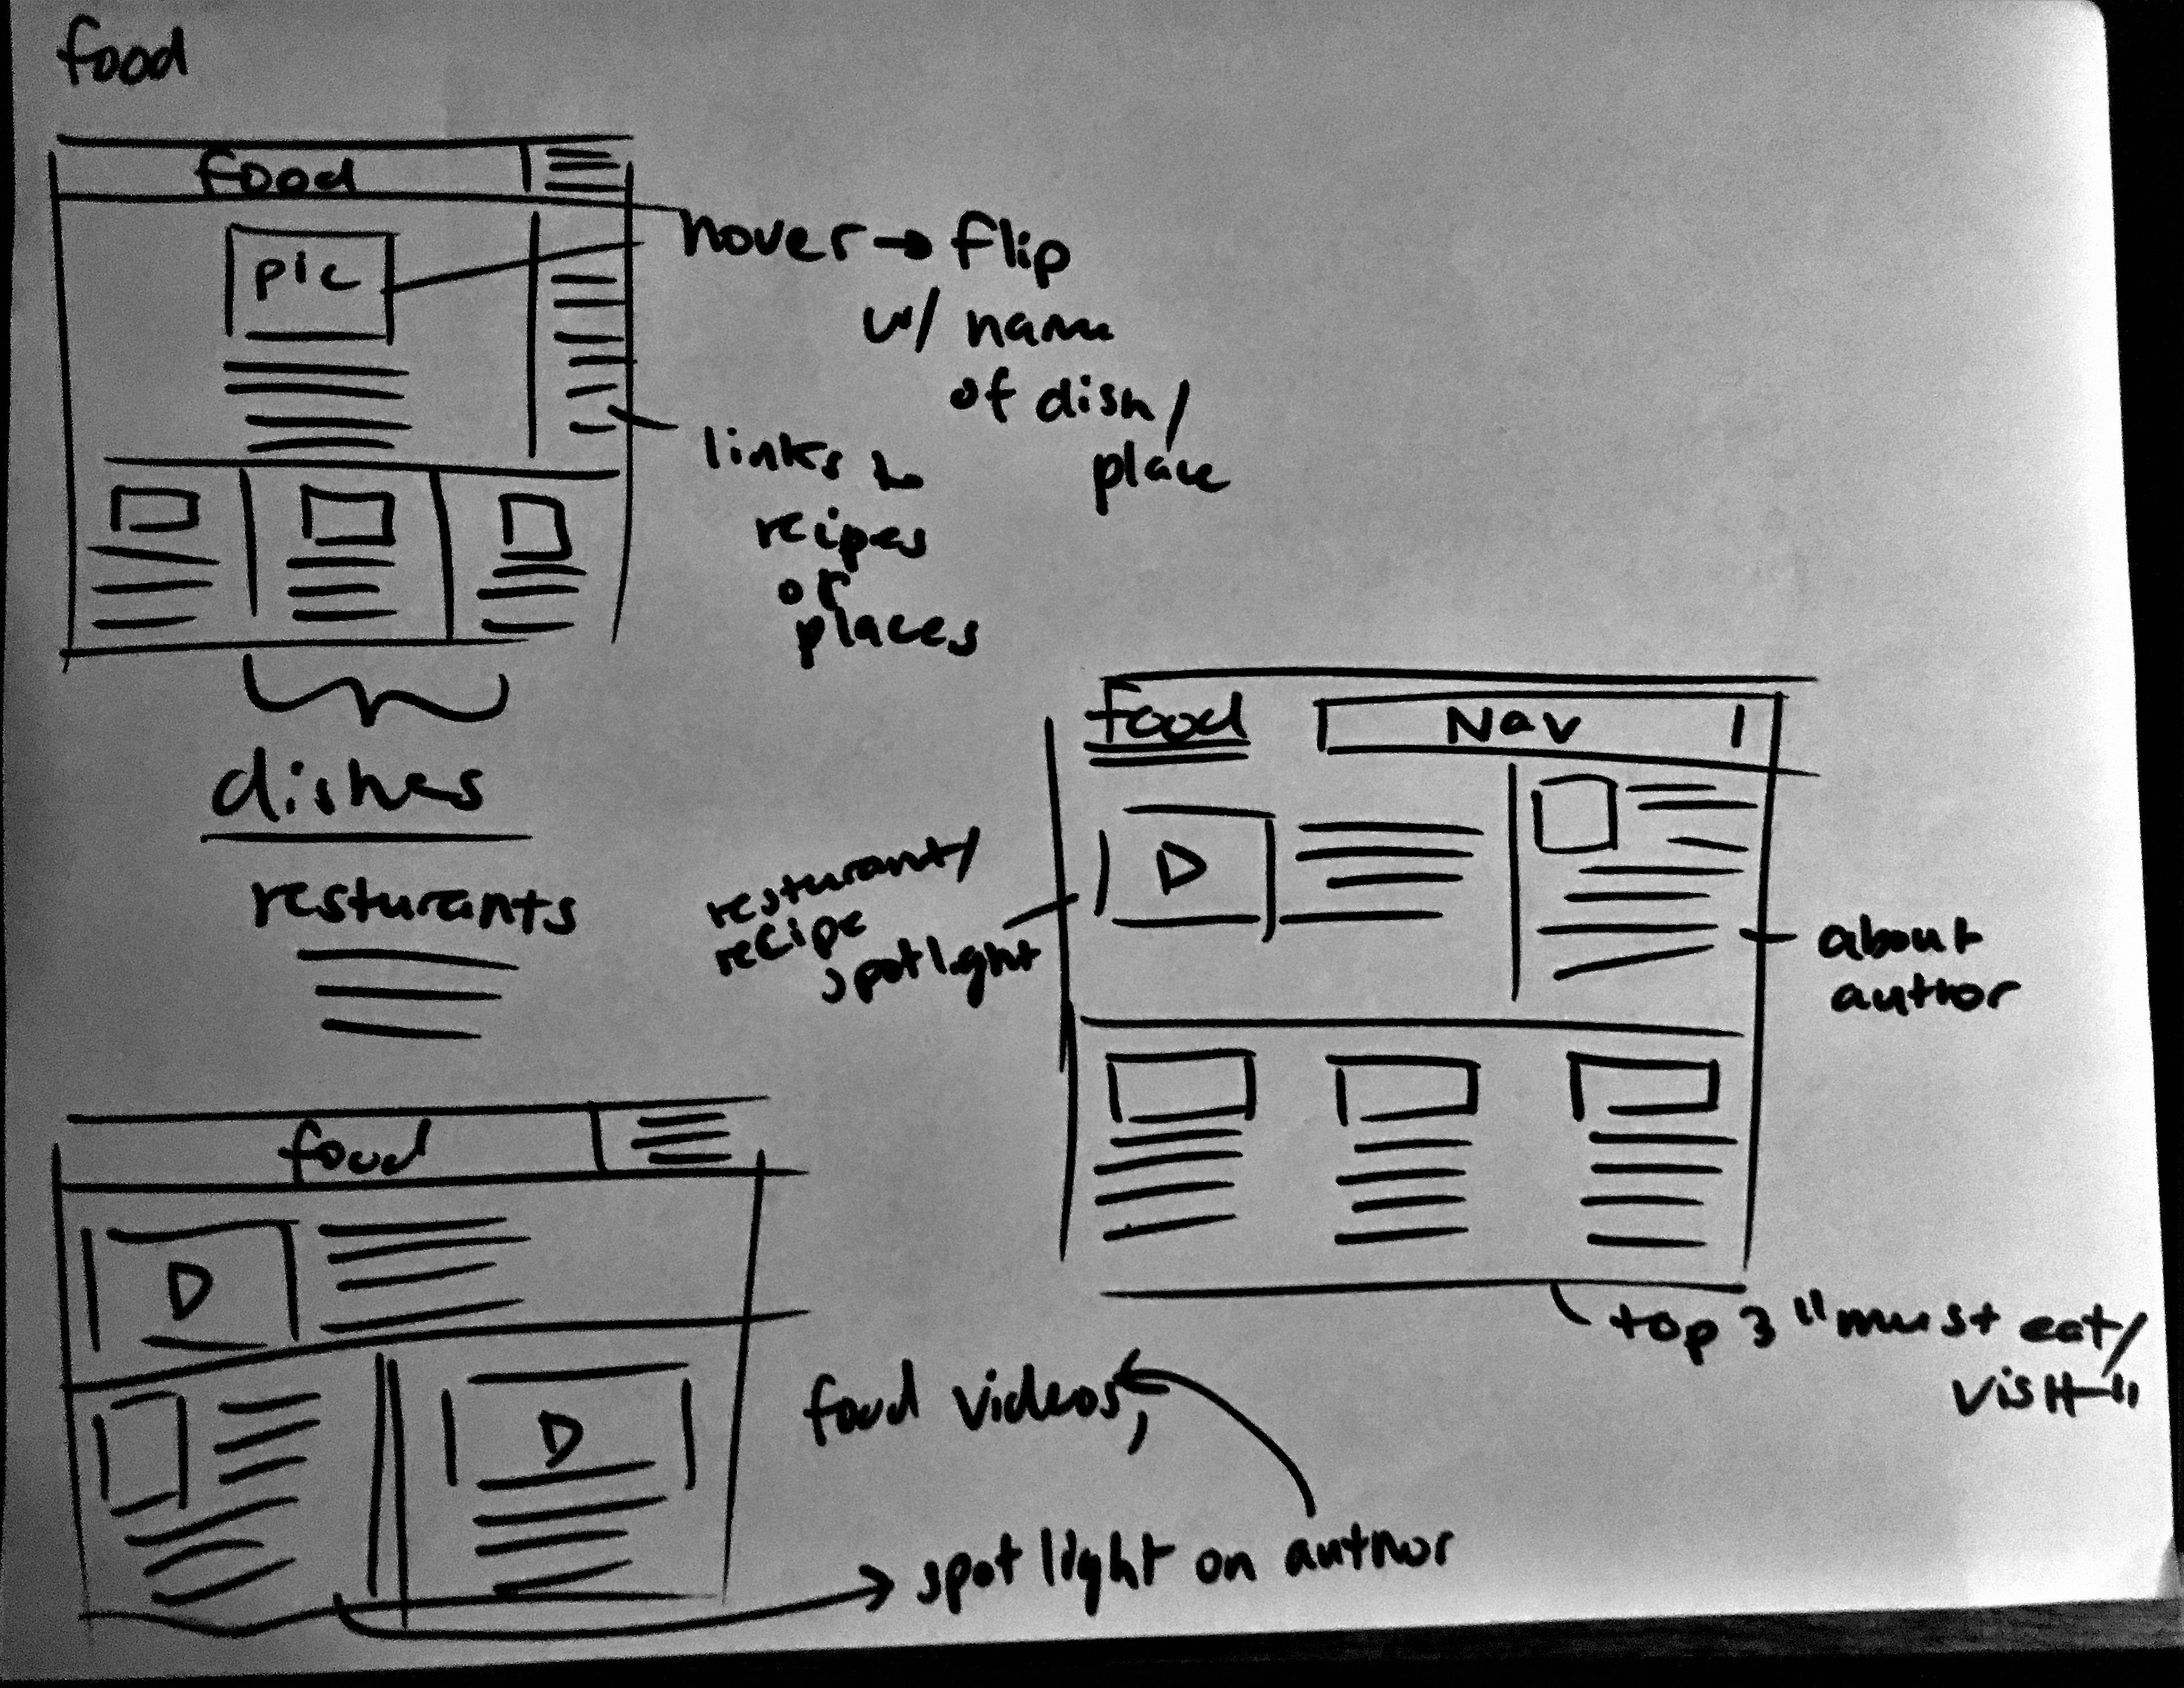 food
food
pic
hover → flip
w/ name
of dish/
place
links to
recipes
or
places
dishes
resturants
food
Nav
resturant/
recipe
spotlight
about
author
top 3 "must eat/
visit"
food
food videos,
spotlight on author